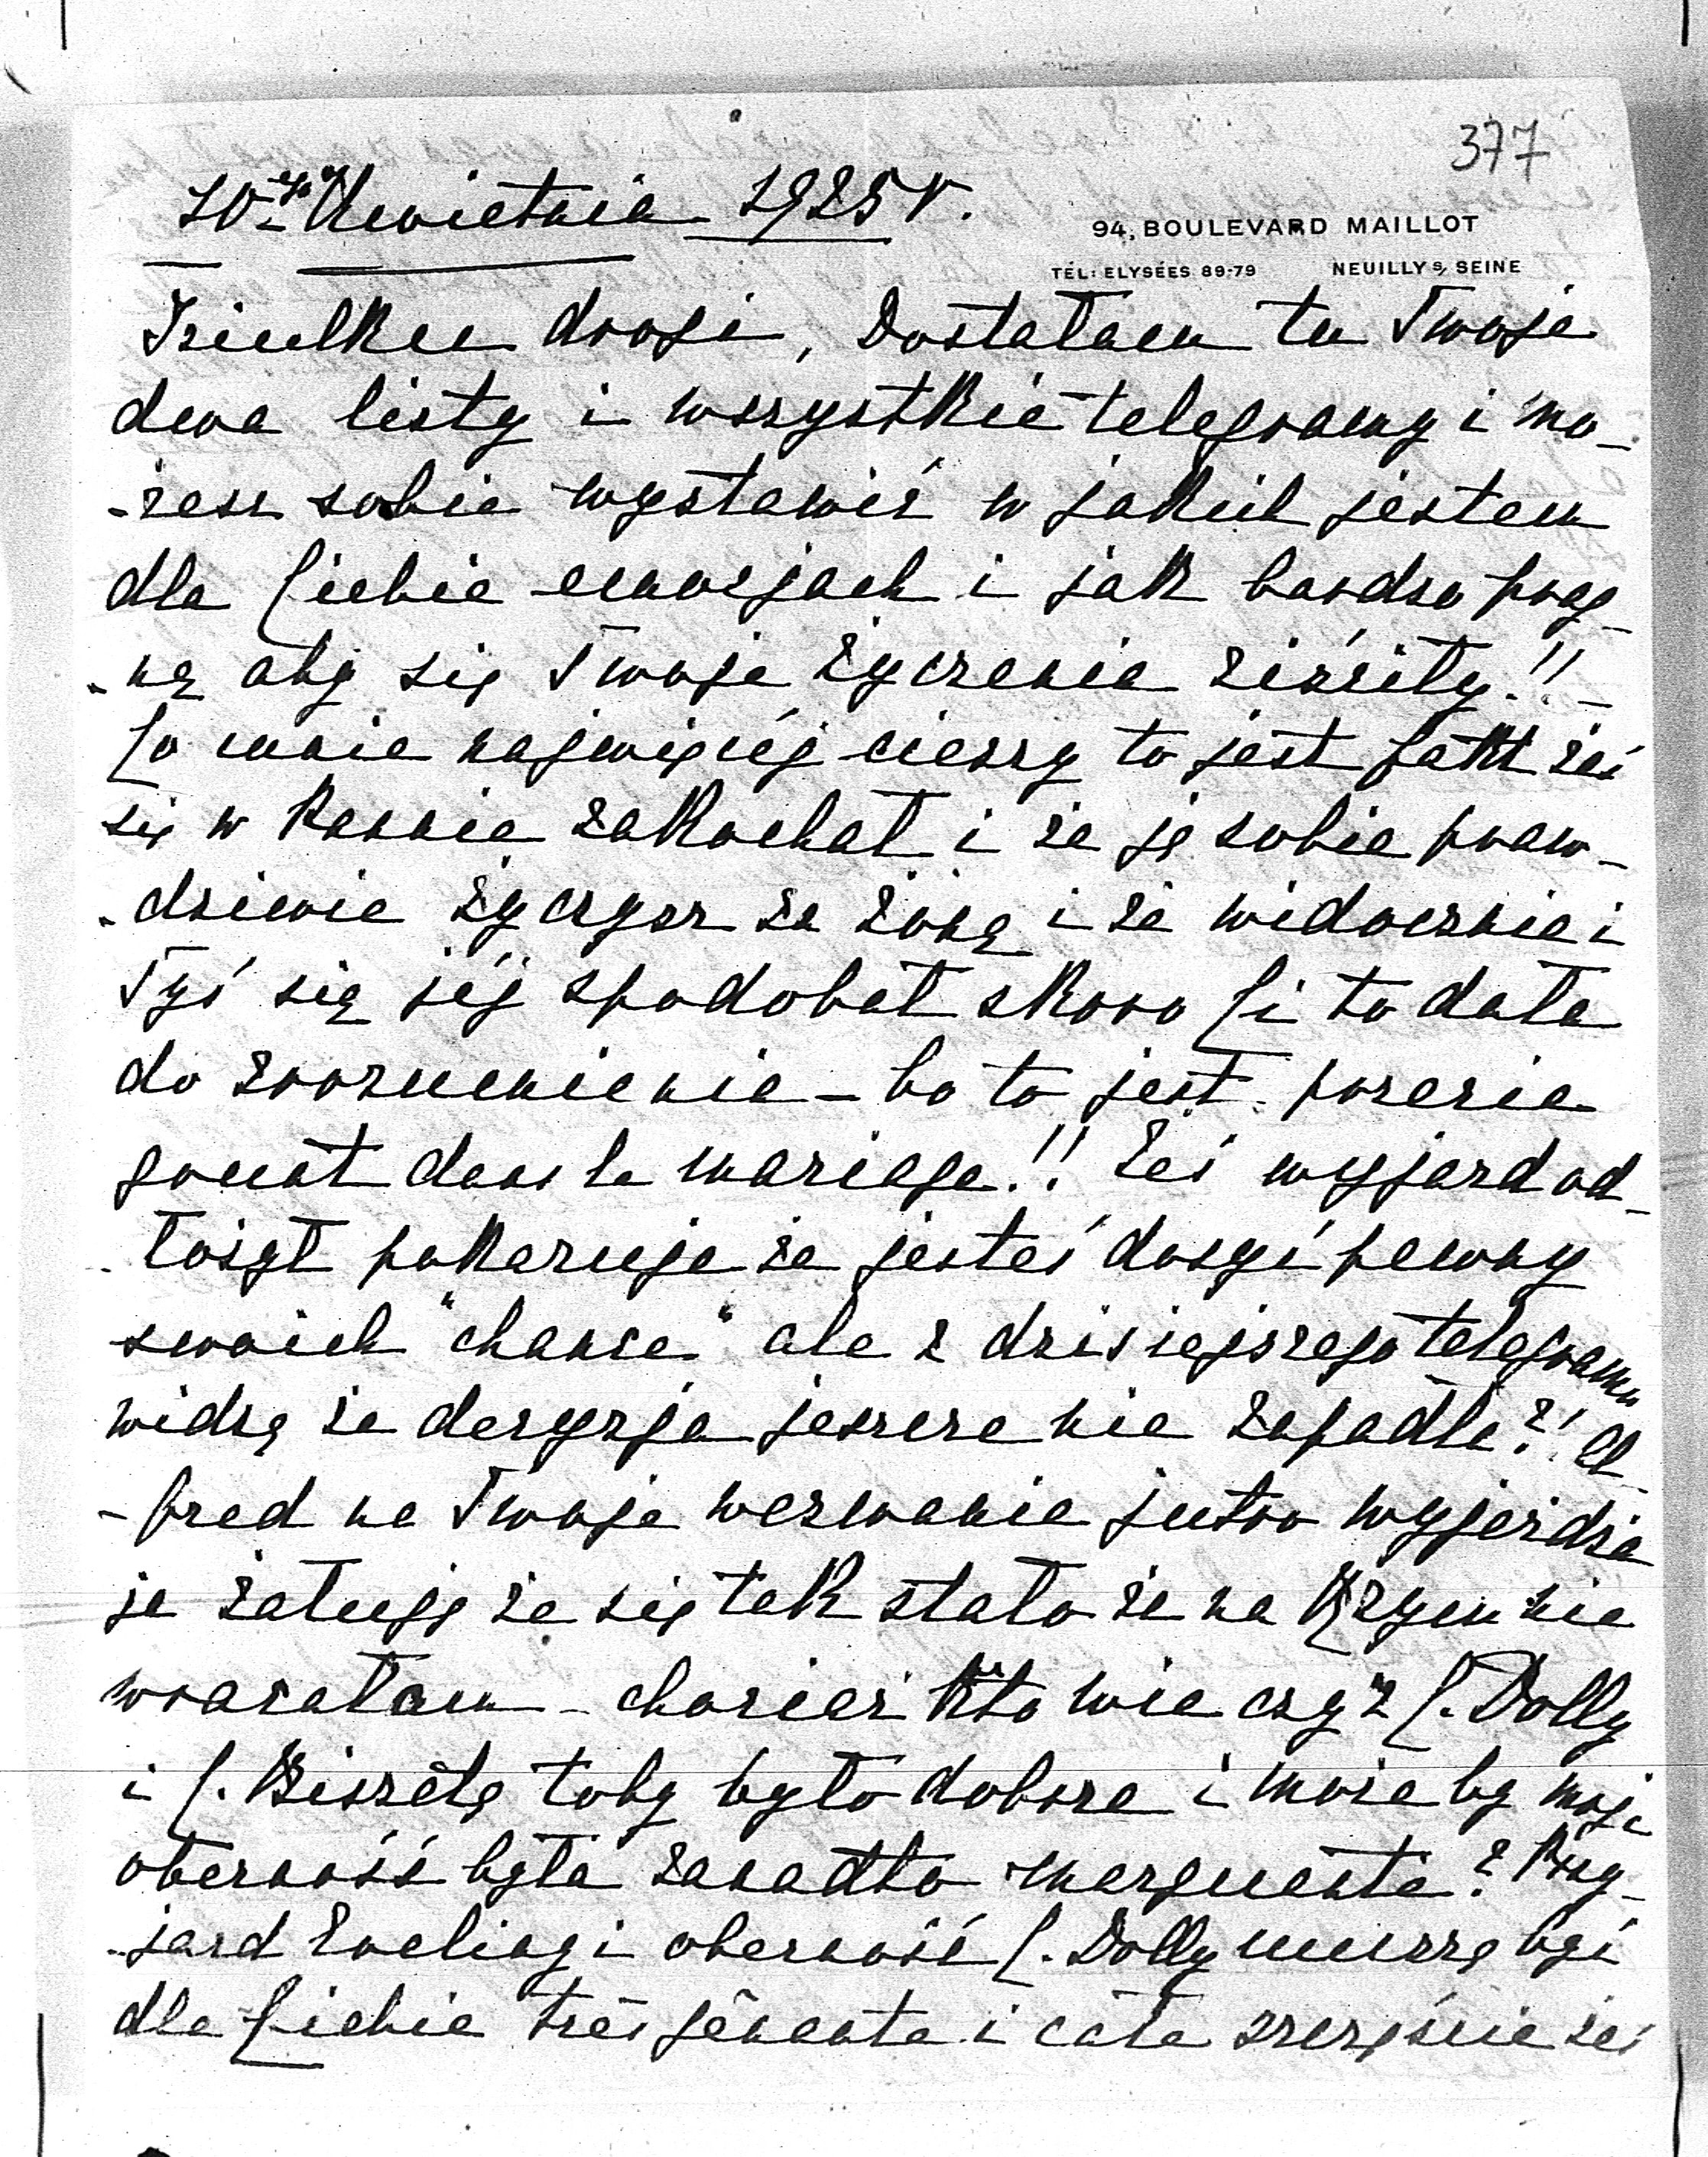 377
10-go Kwietnia 1925 r.
94, BOULEVARD MAILLOT
TÉL: ELYSÉES 89-79 NEUILLY S/ SEINE
drogi, Dostałam tu Twoje
dwa listy i wszystkie telegramy i mo-
-żesz sobie wystawić w jakich jestem
dla Ciebie emocjach i jak bardzo prag-
-nę aby się Twoje życzenia ziściły!!
Co mnie najwięcéj cieszy to jest fakt żeś
się w Pannie zakochał i że ją sobie praw-
-dziwie życzysz za żonę i że widocznie i
Tyś się jéj spodobał skoro Ci to dała
do zrozumienia – bo to jest
dans le mariage!! Żeś wyjazd od-
-łożył pokazuje że jesteś dosyć pewny
swoich "chance" ale z dzisiejszego telegramu
widzę że decyzja jeszcze nie zapadła?! Al-
-fred na Twoje wezwanie jutro wyjeżdża
ja żałuję że się tak stało że na Rzym nie
wracałam – chociaż kto wie czy z C. Dolly
i C. toby było dobrze i może by moja
obecność była zanadto marquante? Przy-
-jazd i obecność C. Dolly muszą być
dla Ciebie très gênante i całe szczęście żeś